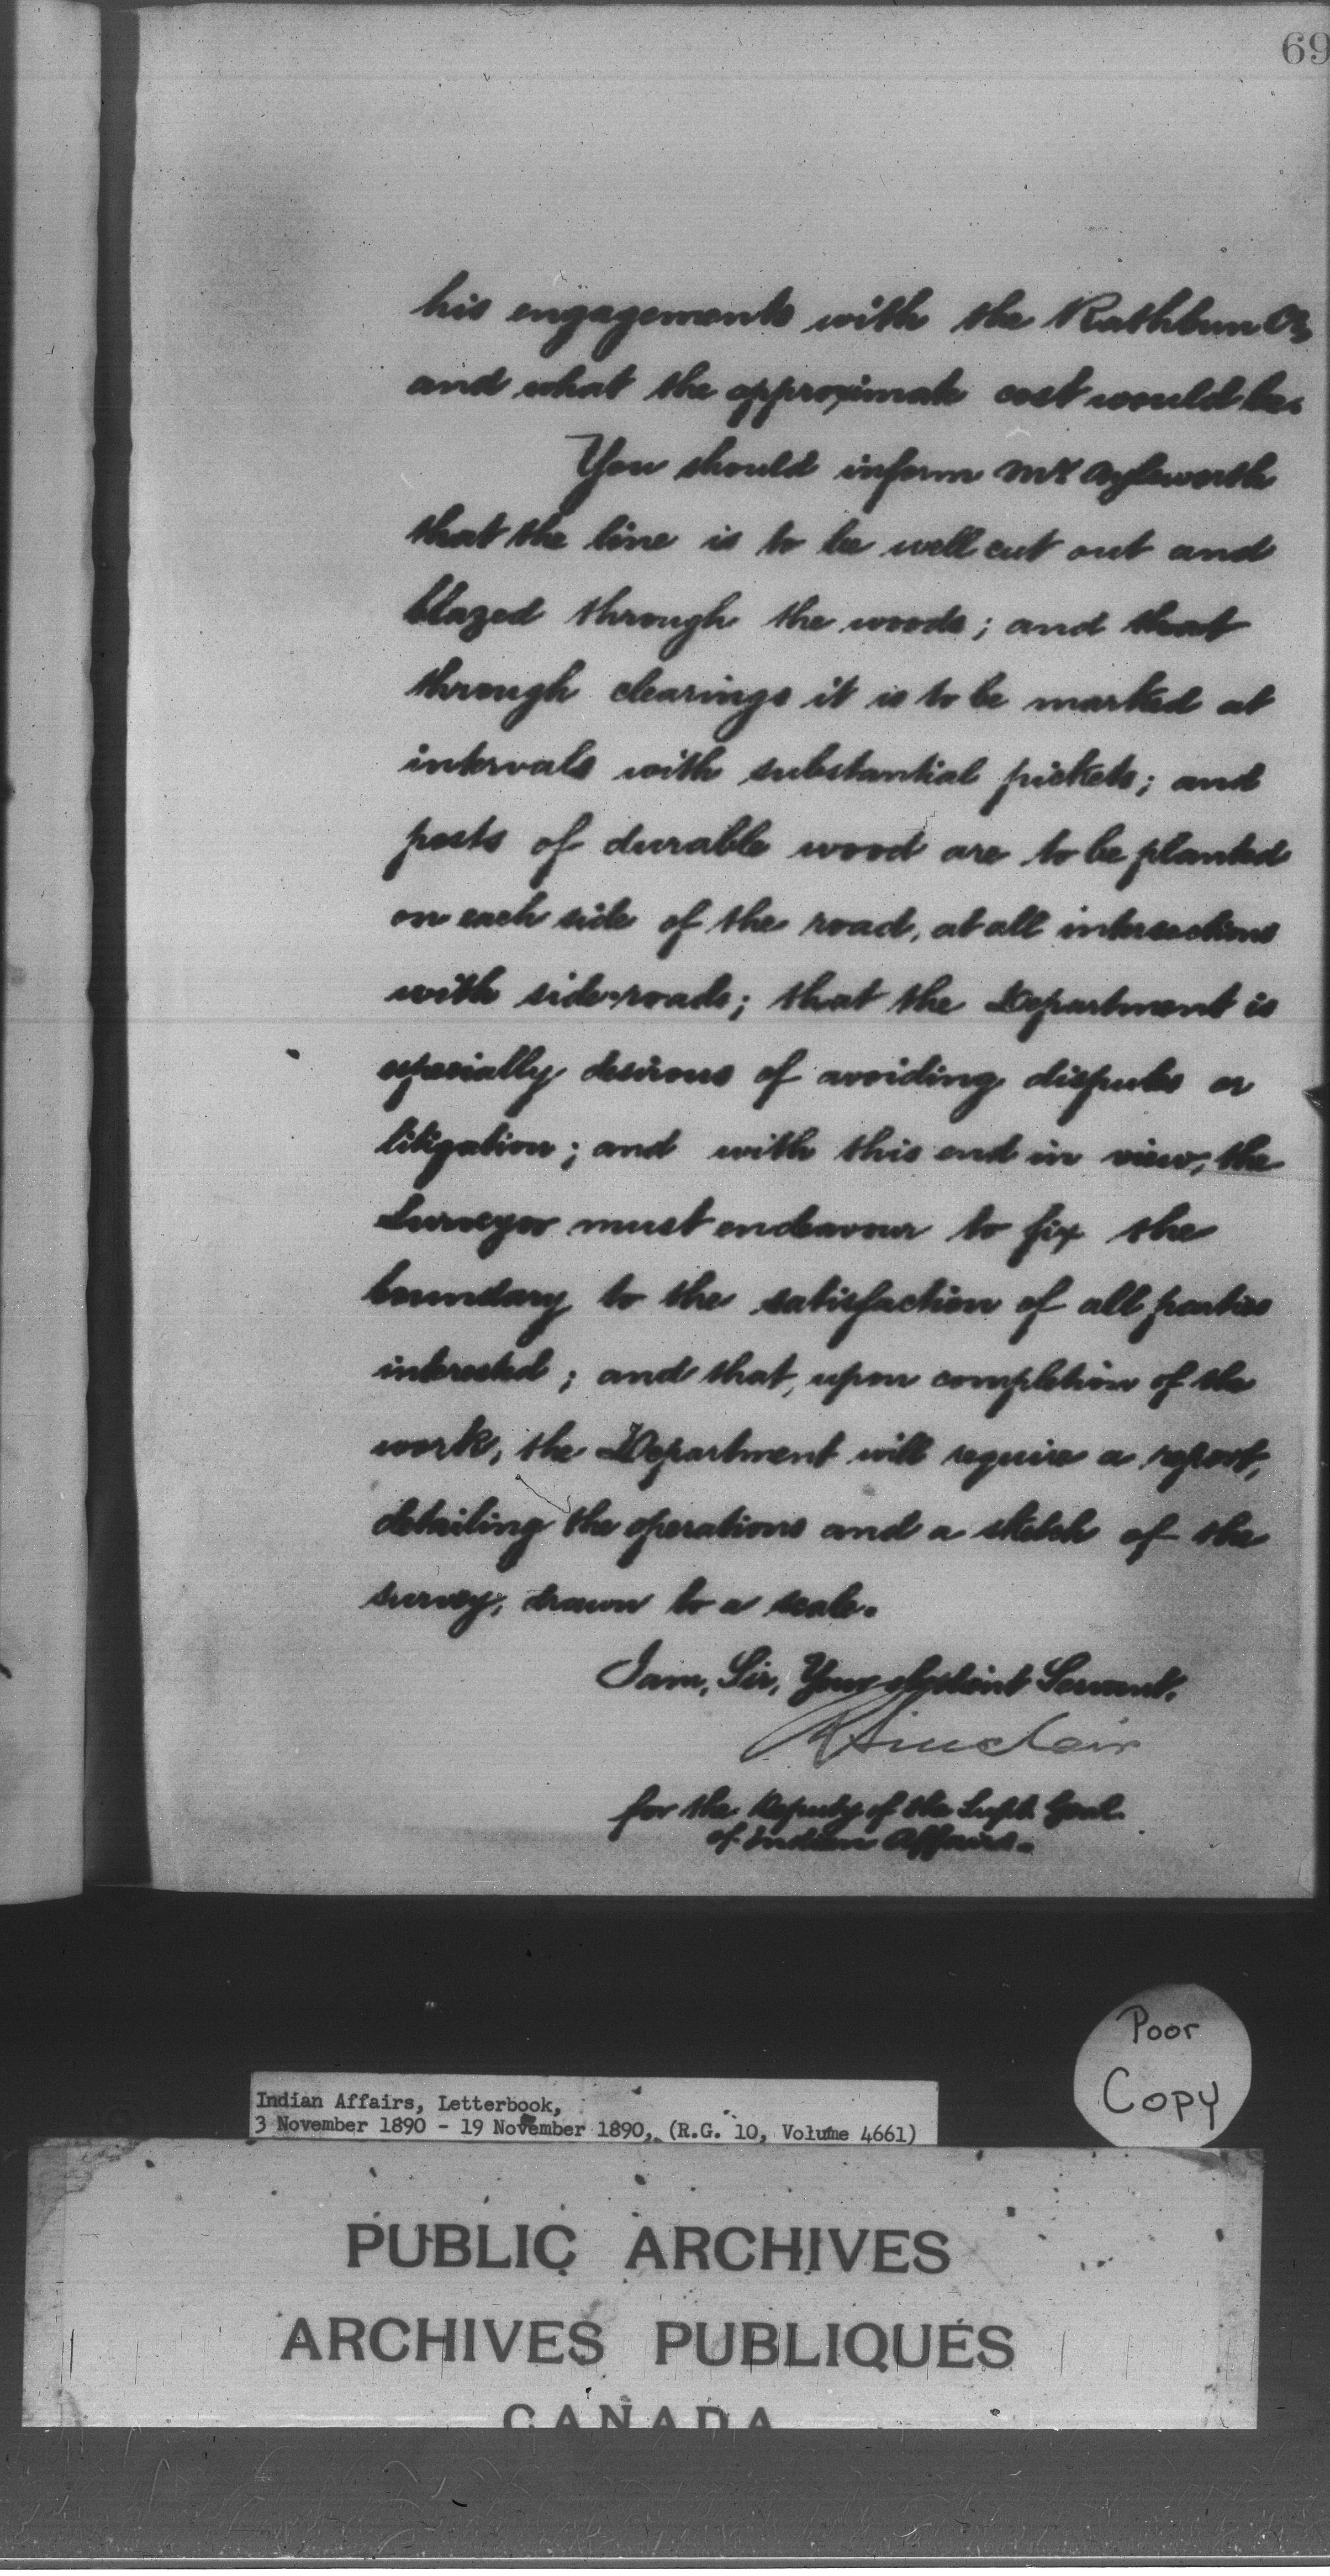 69
his engagements with the Rathbun Co,
and what the approximate cost would be.
You should inform Mr Aylsworth
that the line is to be well cut out and
blazed through the woods; and that
through clearings it is to be marked at
intervals with substantial pickets; and
posts of durable wood are to be planted
on each side of the road, at all intersections
with side-roads; that the Department is
especially desirous of avoiding disputes or
litigation; and with this end in view, the
Surveyor must endeavour to fix the
boundary to the satisfaction of all parties
interested; and that, upon completion of the
work, the Department will require a report,
detailing the operations and a sketch of the
survey, drawn to a scale.
I am, Sir, Your obedient Servant.
R Sinclair
for the Deputy of the Supt. Genl.
of Indian Affairs.
Poor
Copy
Indian Affairs, Letterbook,
3 November 1890 - 19 November 1890, (R.G. 10, Volume 4661)
PUBLIC ARCHIVES
ARCHIVES PUBLIQUES
CANADA